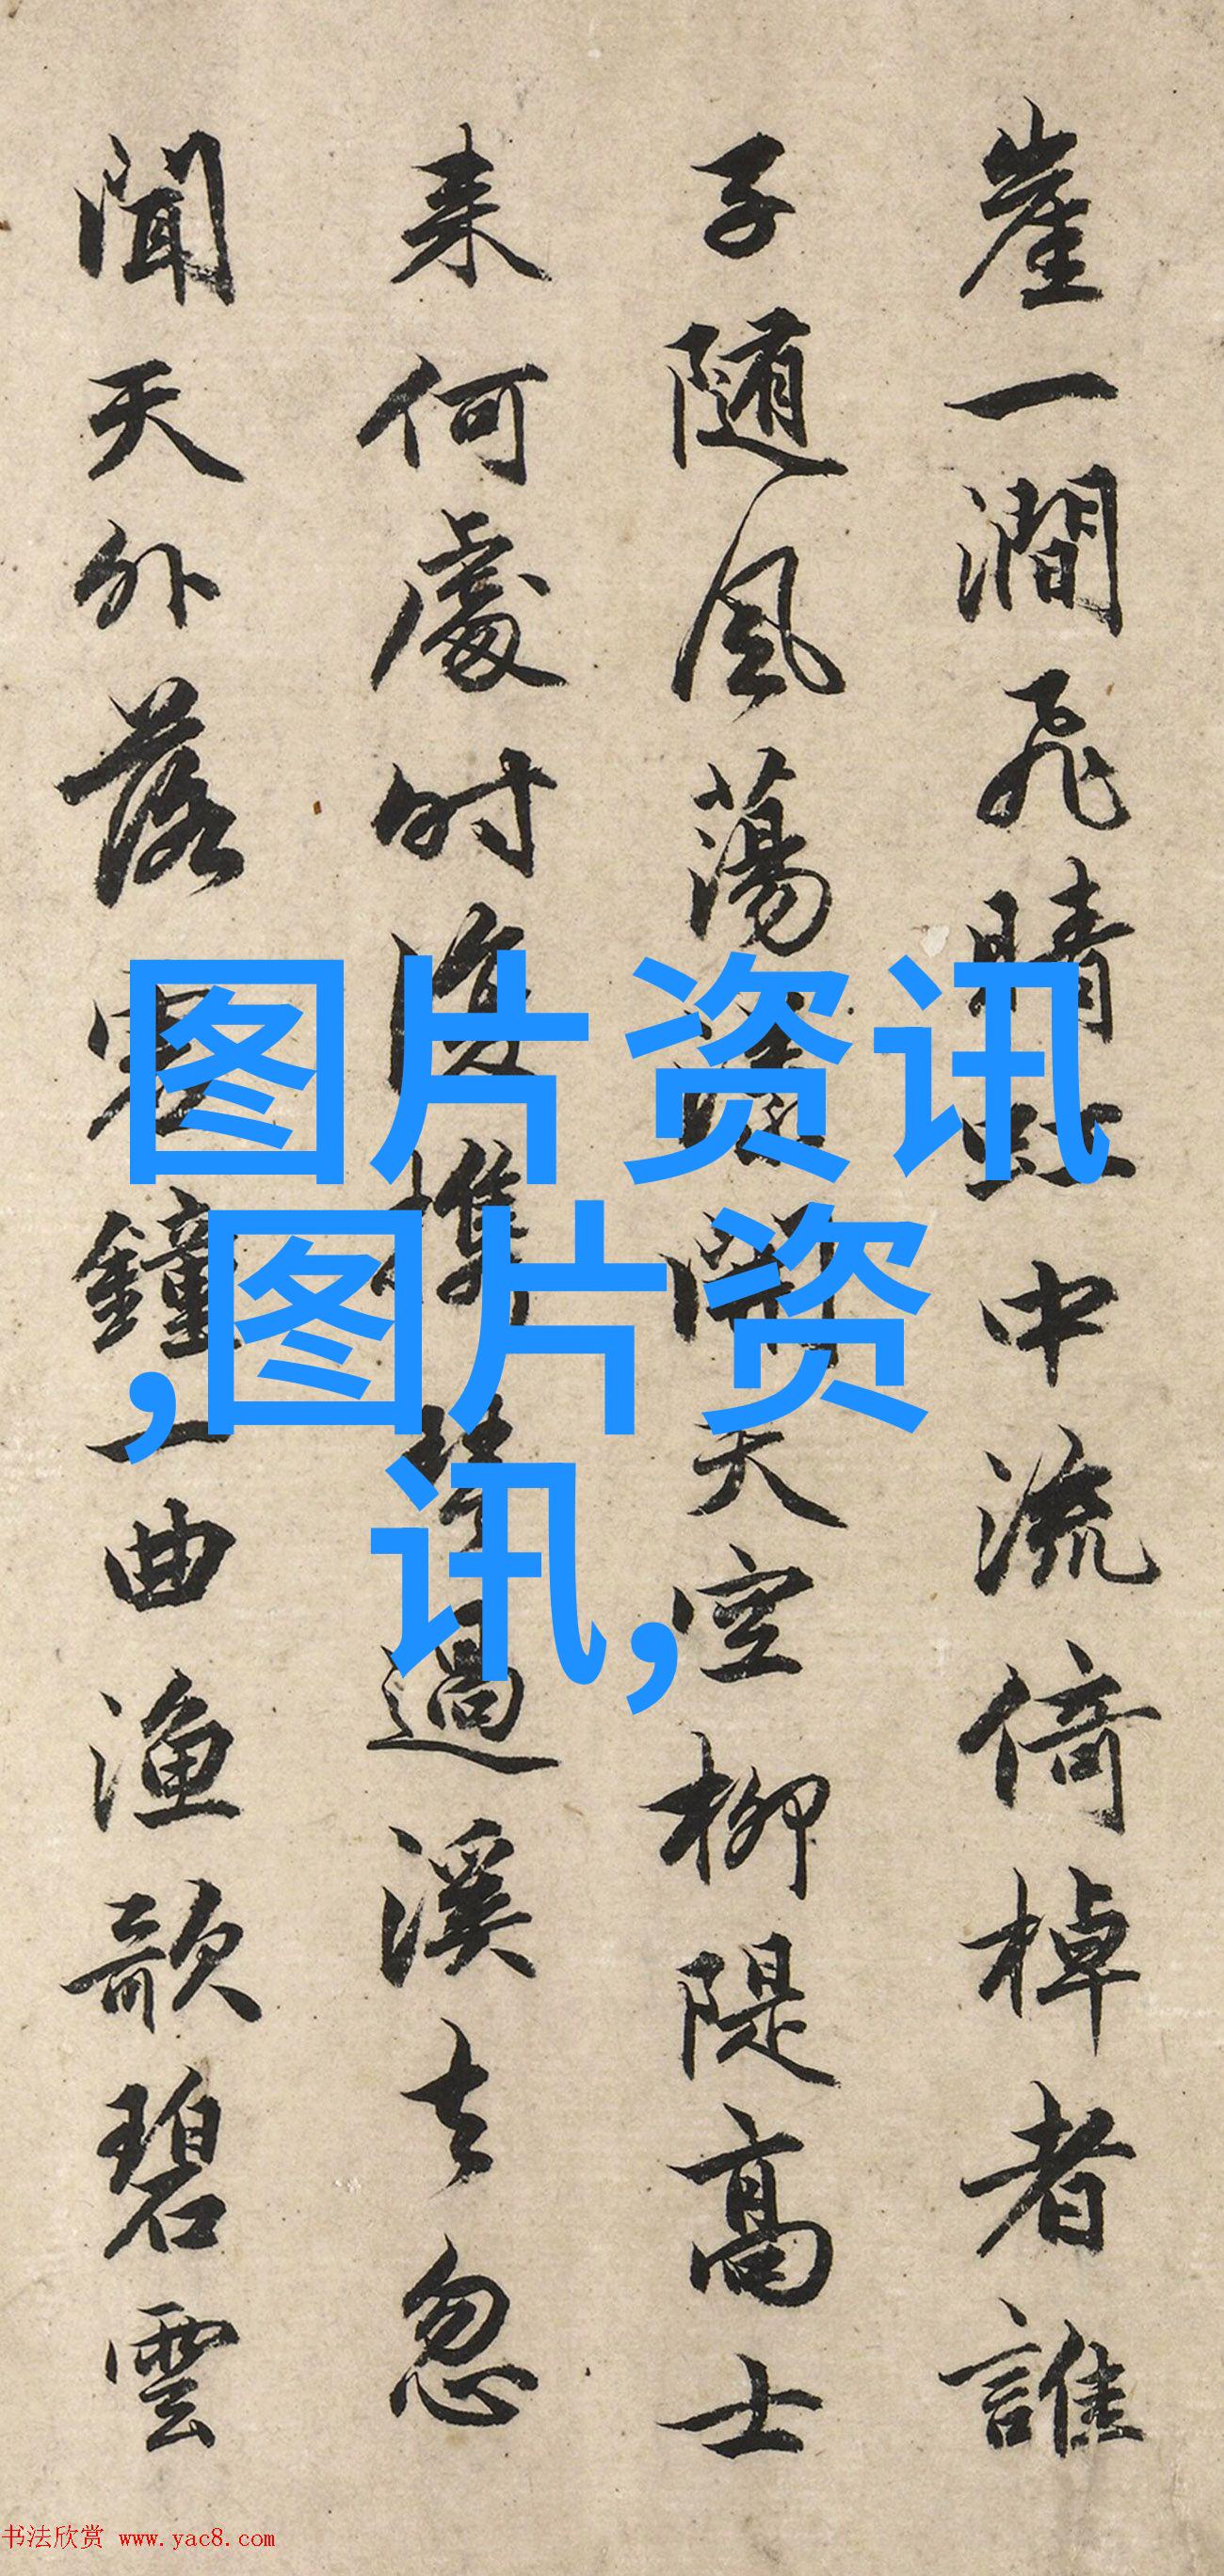 崖一澗飛晴虹中流倚棹者誰
子随風蕩漾開天空柳隄高士
来何處時復携琴過溪去忽
聞天外落寒鐘一曲漁歌碧雲
图片资讯
,图片资
讯,
书法欣赏 www.yac8.com